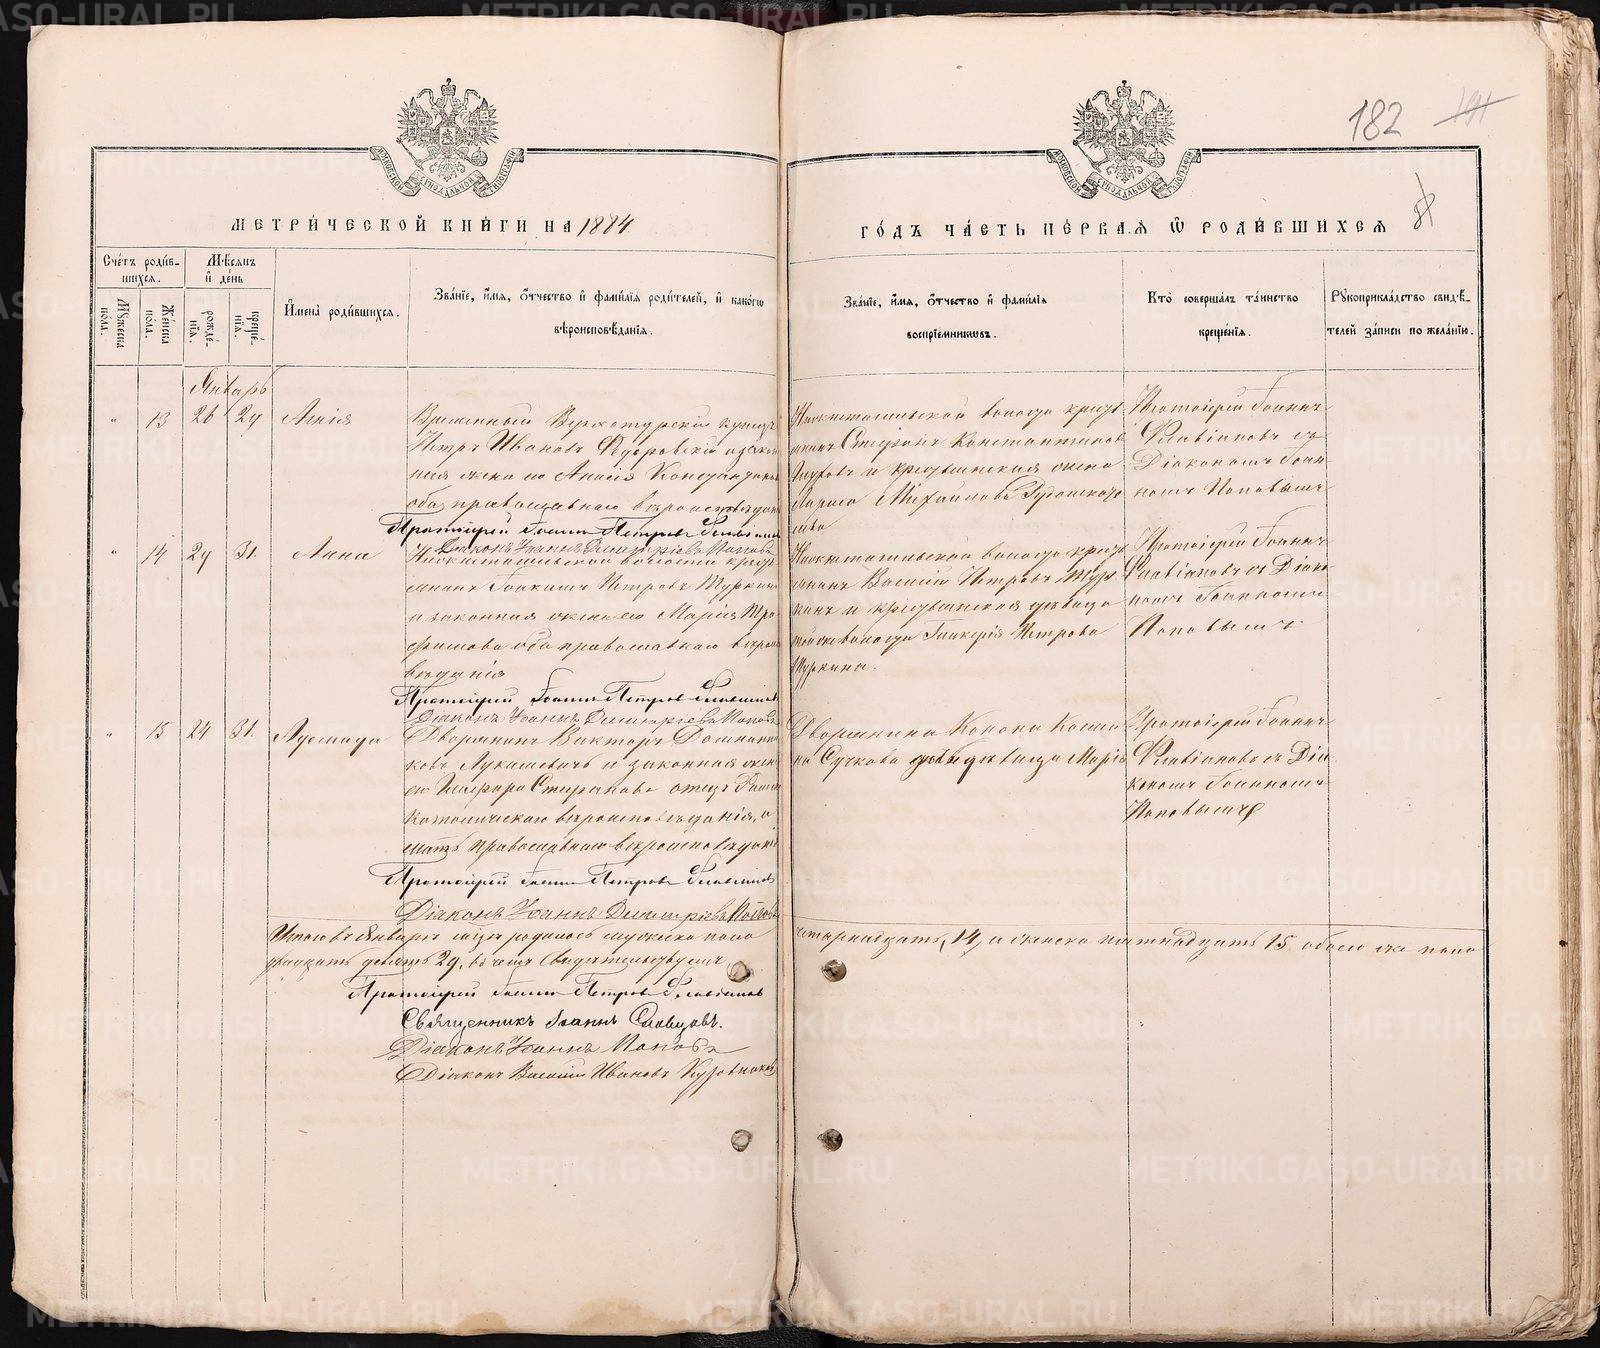 МЕТРИ́ЧЕСКОЙ КНИ́ГИ НА 1884
ГО́ДЪ ЧА́СТЬ ПЕ́РВАЯ Ѡ РОДИ́ВШИХСЯ
182
Сче́тъ роди́в-
шихся.
Мѣ́сяцъ
и́ де́нь
Му́жеска
по́ла.
Же́нска
по́ла.
рожде́-
нїя.
креще́-
нїя.
И́мена̀ роди́вшихся.
Зва́нїе, и́мя, о́тчество и́ фами́лїя роди́телей, и́ како́гѡ
вѣроисповѣ́данїя.
Зва́нїе, и́мя, о́тчество и́ фами́лїя
воспрїе́мникѡвъ.
Кто̀ соверша́лъ та́инство
креще́нїя.
Рꙋкоприкла́дство свидѣ́-
телей за́писи по жела́нїю.
Январь
13 26 29
Временный Верхотурскій купецъ
Петръ Ивановъ Ѳедоровскій и закон
ная жена его Константинова
оба православнаго вѣроисповѣданія
Протоіерей Іоаннъ Петровъ Флавіановъ
Діаконъ Іоаннъ Димитріевъ Поповъ
Нижнетагильской волости кресть
янинъ Стефанъ Константиновъ
и крестьянская жена
Михайлова
Протоіерей Іоаннъ
Флавіановъ съ
Діакономъ Іоан
номъ Поповымъ
14 29 31. Анна
Нижнетагильской волости кресть
янинъ Іоакимъ Петровъ Шуркинъ
и законная жена его Марія Тро
фимова оба православнаго вѣроиспо
вѣданія
Протоіерей Іоаннъ Петровъ Флавіановъ
Діаконъ Іоаннъ Димитріевъ Поповъ
Нижнетагильской волости кресть
янинъ Василій Петровъ Шур
кинъ и крестьянская дѣвица
той же волости Гликерія Петрова
Шуркина.
Протоіерей Іоаннъ
Флавіановъ съ Діако
номъ Іоанномъ
Поповымъ
15 24 31.
Дворянинъ Викторъ Доминико
ковъ Лукашевичъ и законная жена
его Стефанова отецъ Римско
католическаго вѣроисповѣданія, а
мать православнаго вѣроисповѣданія
Протоіерей Іоаннъ Петровъ Флавіановъ
Діаконъ Іоаннъ Димитріевъ Поповъ
Дворянина Конона Косми
на Сучкова дѣвица Марія
Протоіерей Іоаннъ
Флавіановъ съ Діа
кономъ Іоанномъ
Поповымъ
Итого въ Январѣ мѣсяцѣ родилось мужеска пола
четырнадцать, 14, и женска пятнадцать 15 обоего же пола
двадцать девять 29, въ чемъ свидѣтельствуемъ
Протоіерей Іоаннъ Петровъ Флавіановъ
Священникъ Іоаннъ Словцовъ.
Діаконъ Іоаннъ Поповъ
Діаконъ Василій Ивановъ
METRIKI.GASO-URAL.RU